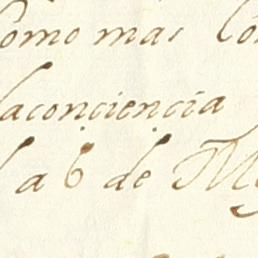 Como mas
laconciencia
a 6 de